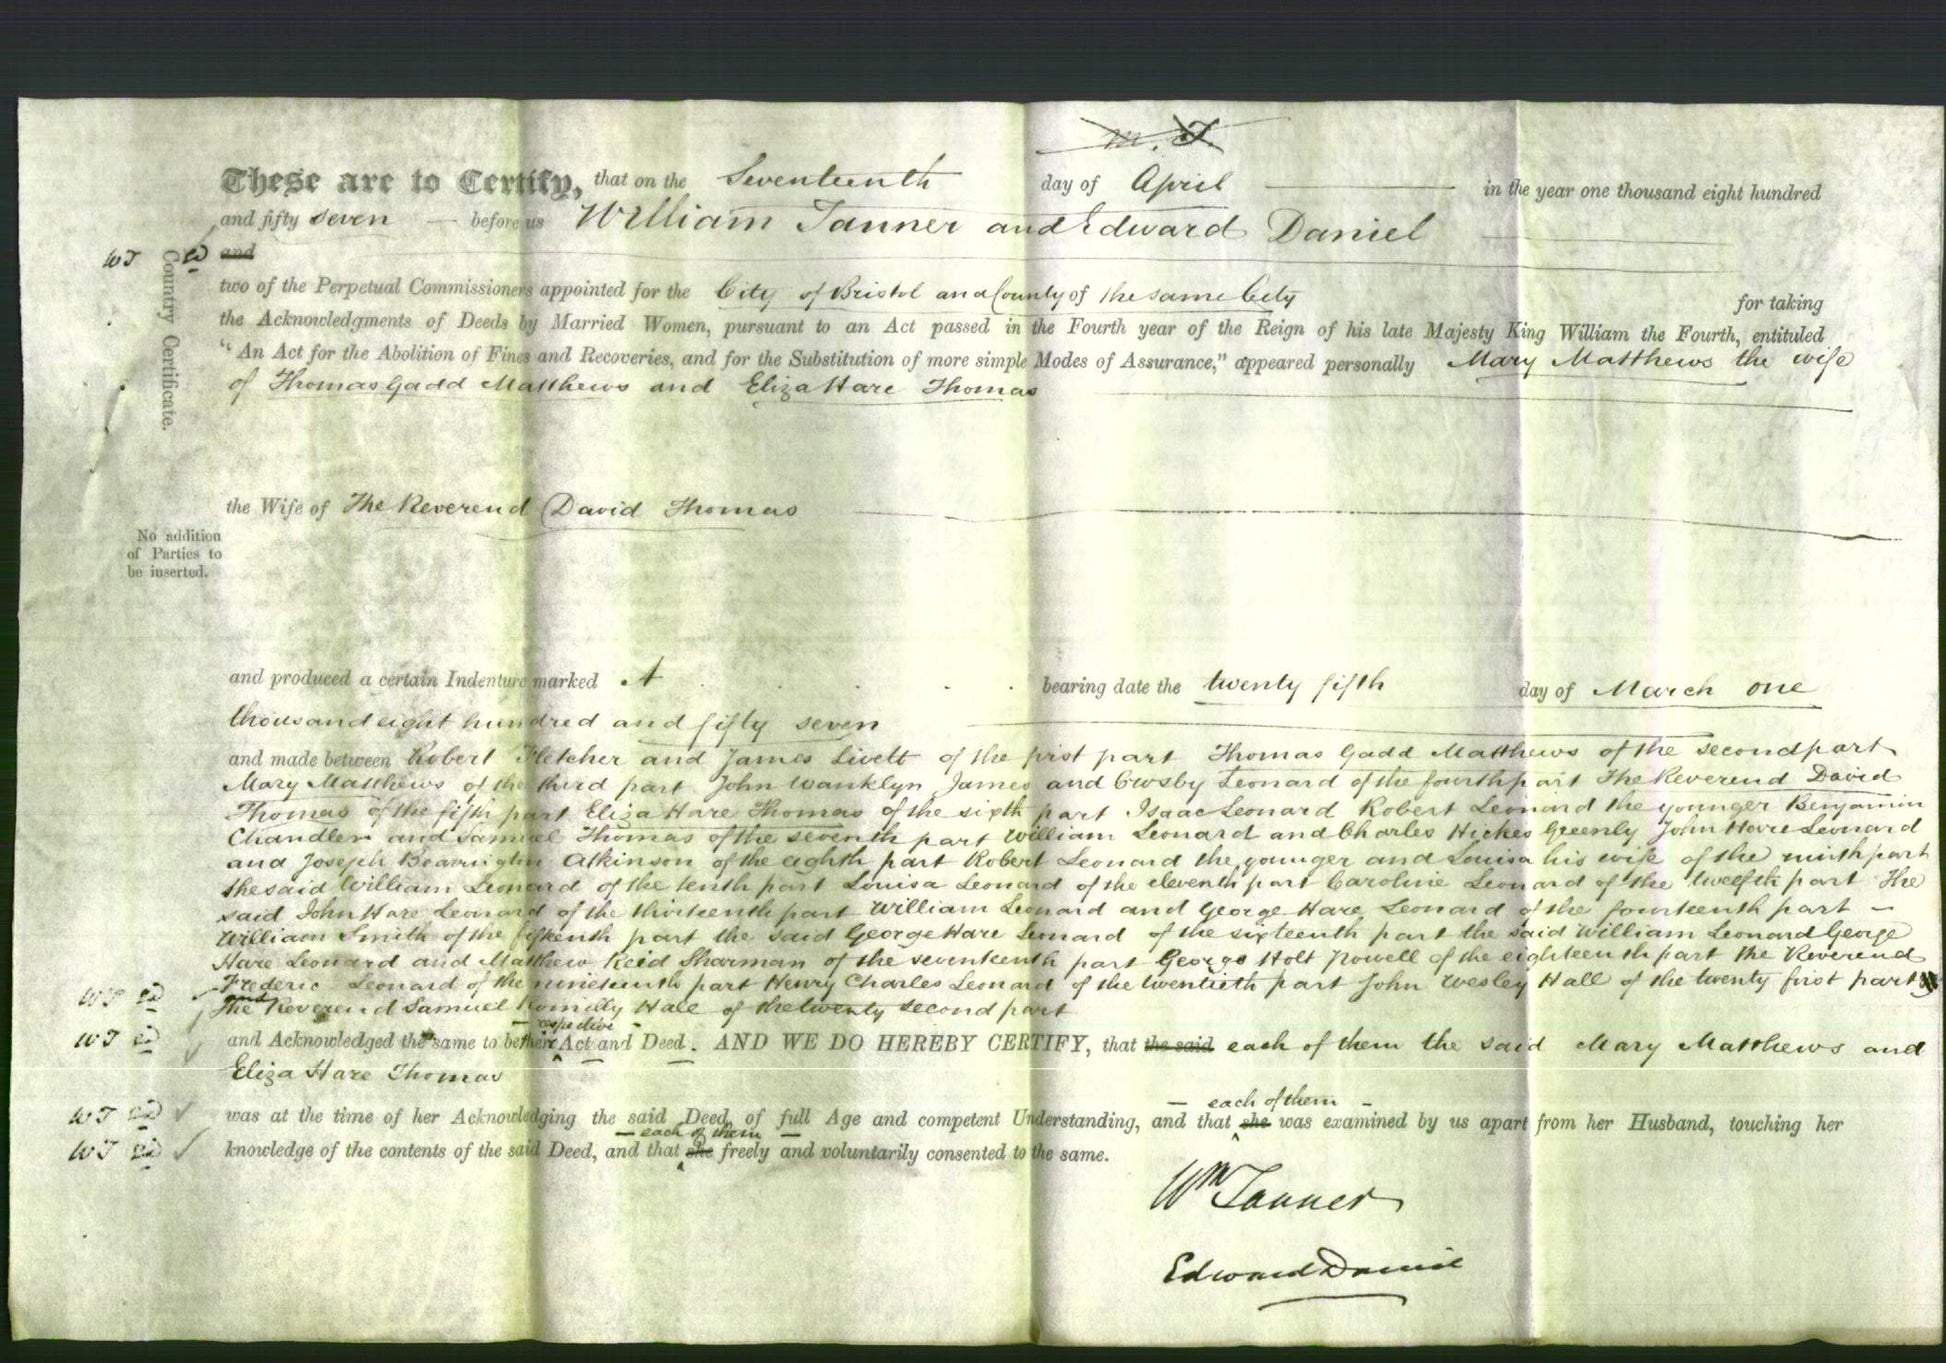 M. T.
These are to Certify, that on the Seventeenth day of April in the year one thousand eight hundred
and fifty seven before us William Tanner and Edward Daniel
WT ED and
Country Certificate.
two of the Perpetual Commissioners appointed for the City of Bristol and County of the same City for taking
the Acknowledgments of Deeds by Married Women, pursuant to an Act passed in the Fourth year of the Reign of his late Majesty King William the Fourth, entituled
"An Act for the Abolition of Fines and Recoveries, and for the Substitution of more simple Modes of Assurance," appeared personally Mary Matthews the wife
of Thomas Gadd Matthews and Eliza Hare Thomas
the Wife of The Reverend David Thomas
No addition
of Parties to
be inserted.
and produced a certain Indenture marked A bearing date the twenty fifth day of March one
thousand eight hundred and fifty seven
and made between Robert Fletcher and James Livett of the first part Thomas Gadd Matthews of the second part
Mary Matthews of the third part John Wanklyn James and Crosby Leonard of the fourth part The Reverend David
Thomas of the fifth part Eliza Hare Thomas of the sixth part Isaac Leonard Robert Leonard the younger Benjamin
Chandler and Samuel Thomas of the seventh part William Leonard and Charles Hickes Greenly John Hare Leonard
and Joseph Atkinson of the eighth part Robert Leonard the younger and Louisa his wife of the ninth part
the said William Leonard of the tenth part Louisa Leonard of the eleventh part Caroline Leonard of the twelfth part The
said John Hare Leonard of the thirteenth part William Leonard and George Hare Leonard of the fourteenth part
William Smith of the fifteenth part the said George Hare Leonard of the sixteenth part the said William Leonard George
Hare Leonard and Matthew Reid Sharman of the seventeenth part George Holt Powell of the eighteenth part the Reverend
Frederic Leonard of the nineteenth part Henry Charles Leonard of the twentieth part John Wesley Hall of the twenty first part
WT ED and
the Reverend Samuel Romilly Hall of the twenty second part
respective
WT ED and Acknowledged the same to be their Act and Deed. AND WE DO HEREBY CERTIFY, that the said each of them the said Mary Matthews and
Eliza Hare Thomas
each of them
WT ED was at the time of her Acknowledging the said Deed, of full Age and competent Understanding, and that she was examined by us apart from her Husband, touching her
each of them
WT ED knowledge of the contents of the said Deed, and that she freely and voluntarily consented to the same.
Wm Tanner
Edward Daniel